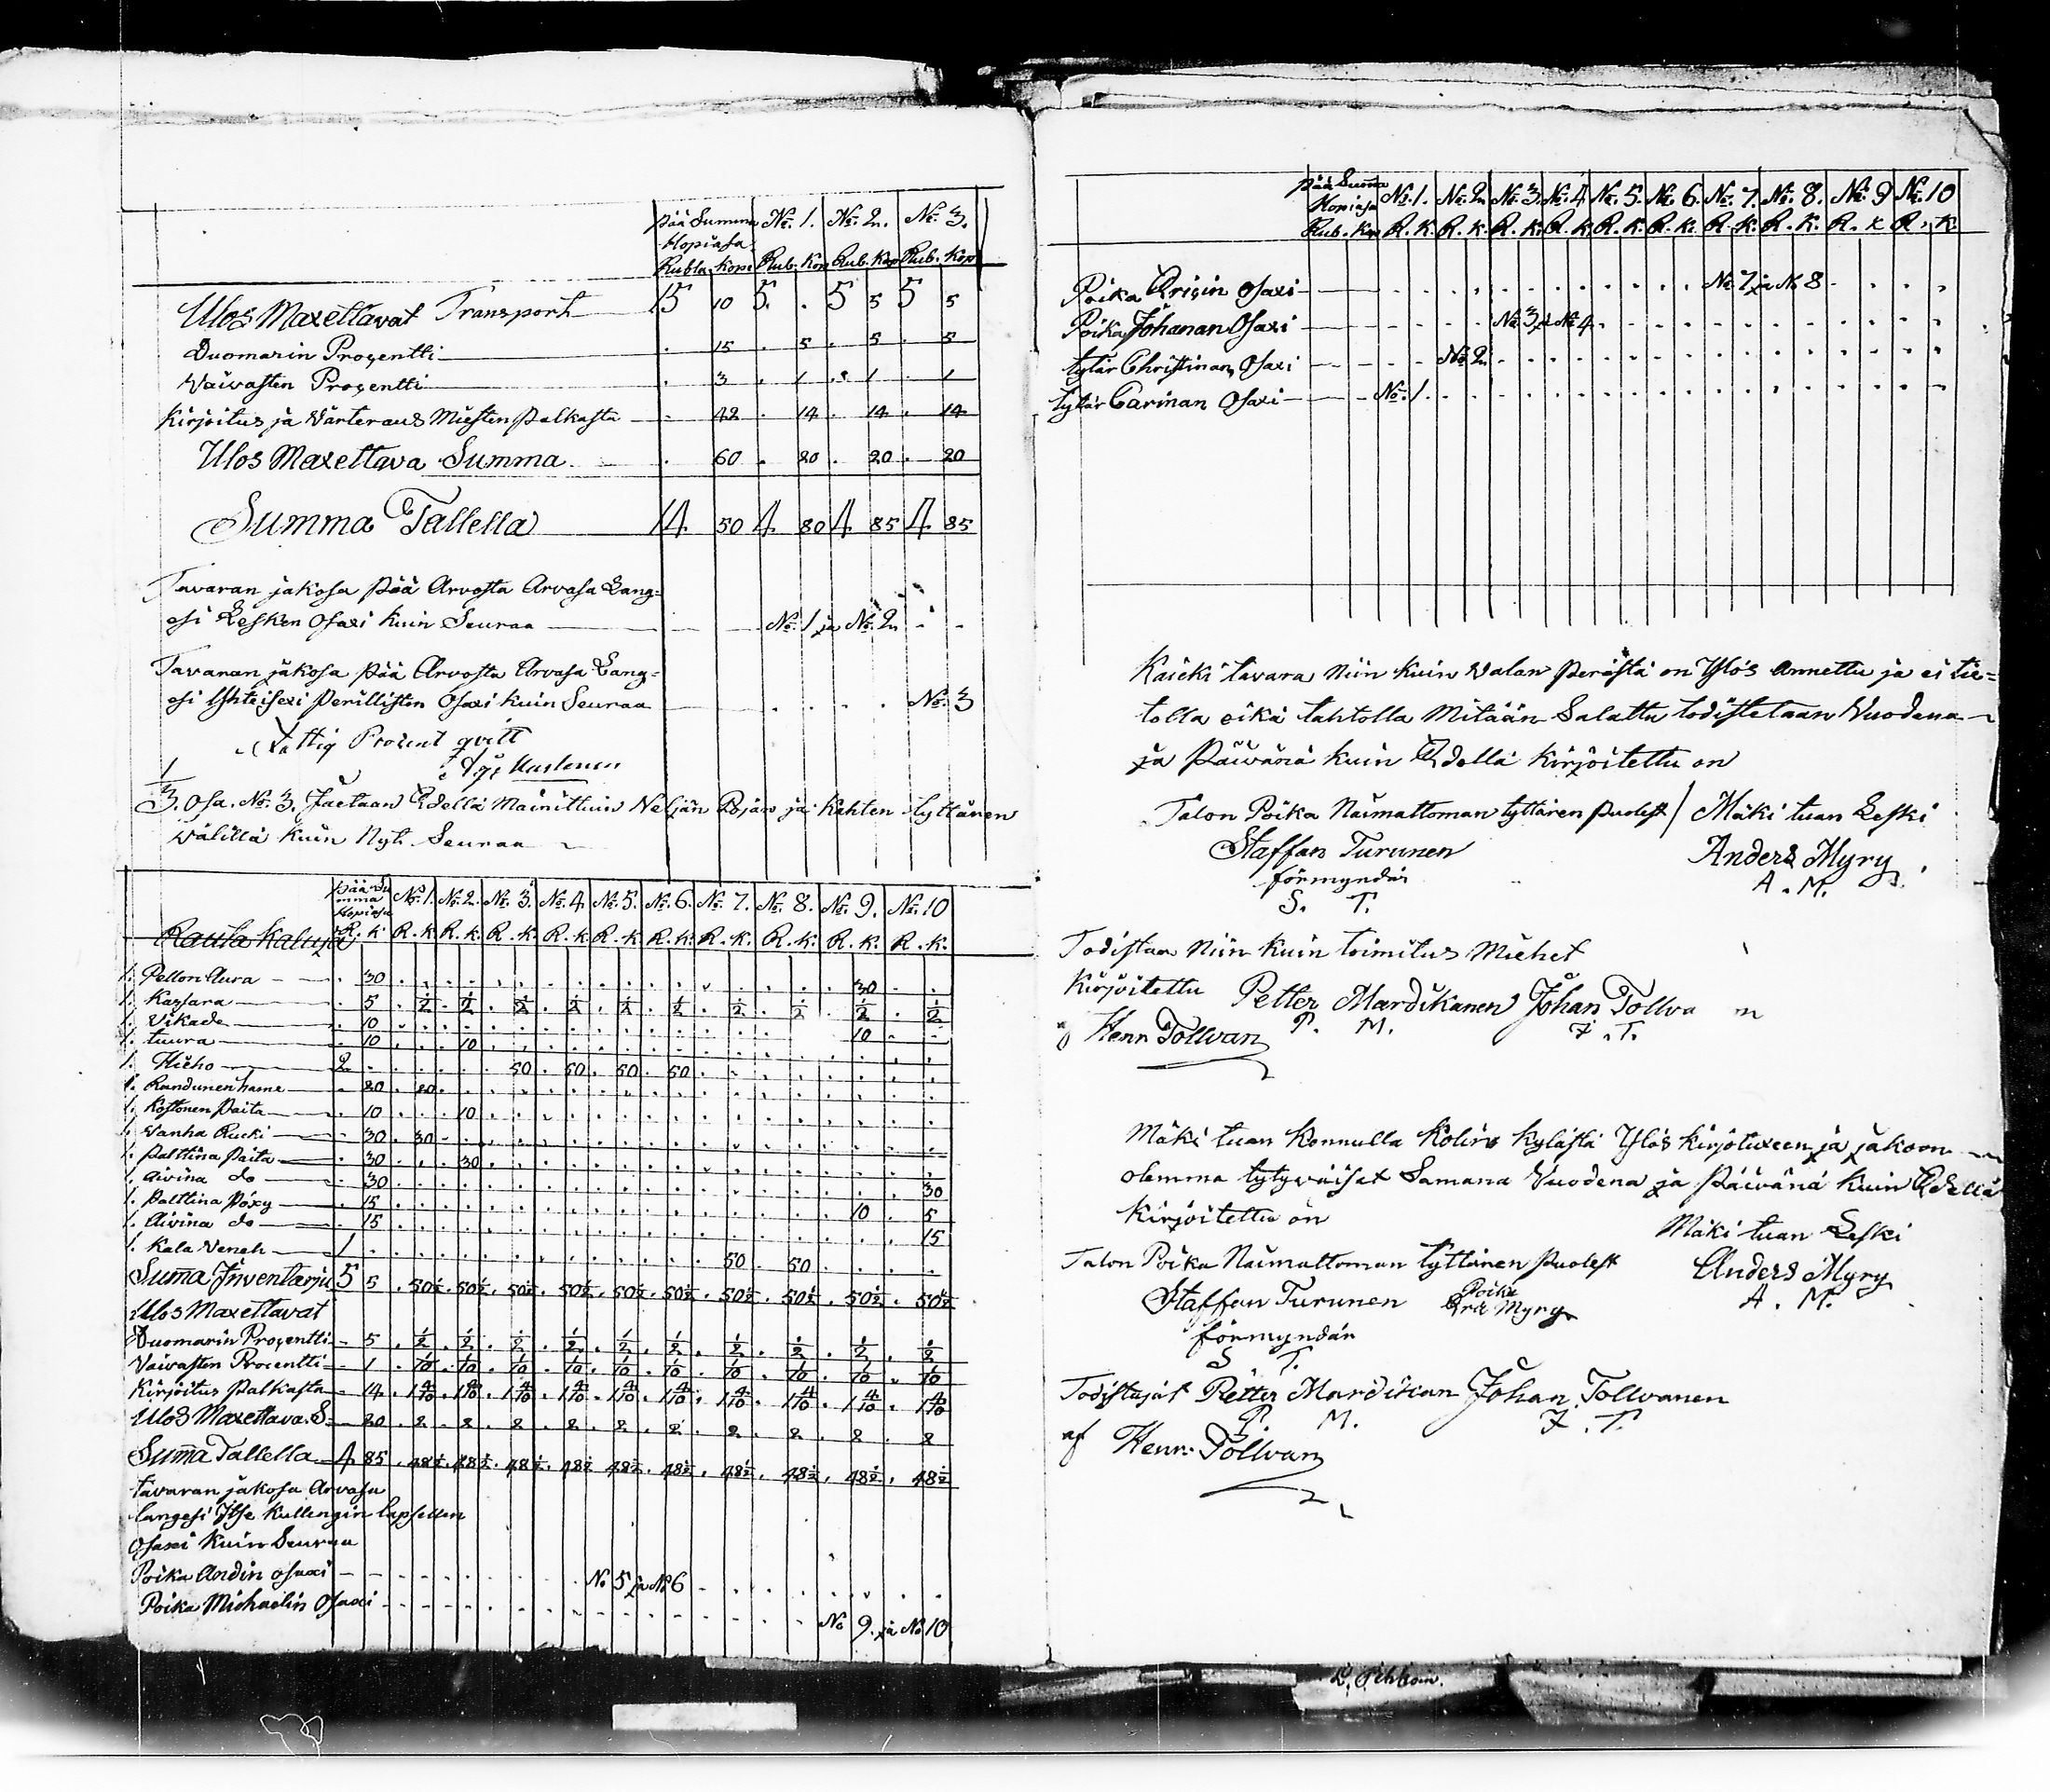 Pää Summa No. 1. No. 2. No. 3.
Hopiasa
Rubla kope Rub. Kop Rub. Kop Rub. Kop
Ulos Maxettavat Transport 15 10 5. . 5 5 5 5
Duomarin Proçentti . 15 . 5 . 5 . 5
Vaivasten Proçentti . 3 . 1 . 1 . 1
Kirjoitus ja Värteraus Miesten Palkasta . 42 . 14 . 14 . 14
Ulos Maxettava Summa . 60 . 20 . 20 . 20
Summa Tallella 14 50 4 80 4 85 4 85
Tavaran jakosa Pää Arvosta Arvasa Lang=
esi Lesken Osaxi kuin Seuraa No. 1 ja No. 2
Tavaran jakosa Pää Arvosta Arvasa Lang=
esi Yhteisexi Perillisten Osaxi kuin Seuraa No. 3
Fattig Procent qvitt
1/3 Osa. No. 3. Jaetaan Edellä Mainittuin Neljän Pojan ja Kahten tyttären
välillä kuin Nyt Seuraa
Pää Summa Hopiasa No. 1. No. 2. No. 3. No. 4. No. 5. No. 6. No. 7. No. 8. No. 9. No. 10
Rauta kaluja R. k. R. k. R. k. R. k. R. k. R. k. R. k. R. k. R. k. R. k. R. k.
1. Pellon Aura . 30 30
1. Kassara . 5 . 1/2 . 1/2 . 1/2 . 1/2 . 1/2 . 1/2 . 1/2 . 1/2 . 1/2 . 1/2
1. Vikade . 10 10
1. tuura . 10 10
1. Hieho 2 50 . 50 . 50 . 50
1. hame . 20 . 20
1. Paita . 10 10
1. Vanha Rucki . 30 . 30
1. Palttina Paita . 30 30
1. Aivina do . 30 30
1. Palttina Pöxy . 15 10 . 5
1. Aivina do . 15 15
1. Kala Veneh 1 50 . 50
Summa Inventarju 5 5 . 50 1/2 . 50 1/2 . 50 1/2 . 50 1/2 . 50 1/2 . 50 1/2 . 50 1/2 . 50 1/2 . 50 1/2 . 50 1/2
Ulos Maxettavat
Duomarin Proçentti . 5 . 1/2 . 1/2 . 1/2 . 1/2 . 1/2 . 1/2 . 1/2 . 1/2 . 1/2 . 1/2
Vaivasten Procentti . 1 . 1/10 . 1/10 . 1/10 . 1/10 . 1/10 . 1/10 . 1/10 . 1/10 . 1/10 . 1/10
Kirjoitus Palkasta . 14 . 1 4/10 . 1 4/10 . 1 4/10 . 1 4/10 . 1 4/10 . 1 4/10 . 1 4/10 . 1 4/10 . 1 4/10 . 1 4/10
Ulos Maxettava S: . 20 . 2 . 2 . 2 . 2 . 2 . 2 . 2 . 2 . 2 . 2
Summa Tallella 4 85 . 48 1/2 . 48 1/2 . 48 1/2 . 48 1/2 . 48 1/2 . 48 1/2 . 48 1/2 . 48 1/2 . 48 1/2 . 48 1/2
tavaran jakosa Arvasa
langesi Itse kullengin lapsellen
Osaxi kuin Seuraa
Poika Andin osaxi No 5 ja No 6
Poika Michaelin Osaxi No 9. ja No 10
Pää Summa No. 1. No. 2. No. 3. No. 4. No. 5. No. 6. No. 7. No. 8. No. 9 No. 10
Hopiasa
Rub. Kop R. K. R. K. R. K. R. K. R. K. R. K. R. K. R. K. R. K. R. K.
Poika Osaxi No 7 ja No 8
Poika Johanan Osaxi No. 3 ja No. 4
tytär Christinan Osaxi No. 2
tytär Carinan Osaxi No. 1
Kaicki tavara Niin kuin Valan Perästä on Ylös Annettu ja ei tie=
tolla eikä tahtolla Mitään Salattu todistetaan Vuodena
ja Päivänä kuin Edellä kirjoitettu on
Talon Poika Naimattoman tyttären Puolest / Mäki tuan Leski
Staffan Turunen Anders Myry
förmyndär A. M.
S. T.
Todistaa Niin kuin toimitus Miehet
Kirjoitettu Petter Mardikanen Johan Tollva n
af Henr Tollvan P. M. J. T.
Mäki tuan Konnulla Kolin kylästä Ylös kirjotuxeen ja jakoon
olemma tytyväiset Samana Vuodena ja Päivänä kuin Edellä
Kirjoitettu on Mäki tuan Leski
Talon Poika Naimattoman tyttären Puolest Anders Myry
Staffan Turunen Poika Myry A. M.
förmyndär
S. T.
Todistajat Petter Mardikan Johan Tollvanen
P. M. J. T.
af Henr. Tollvan